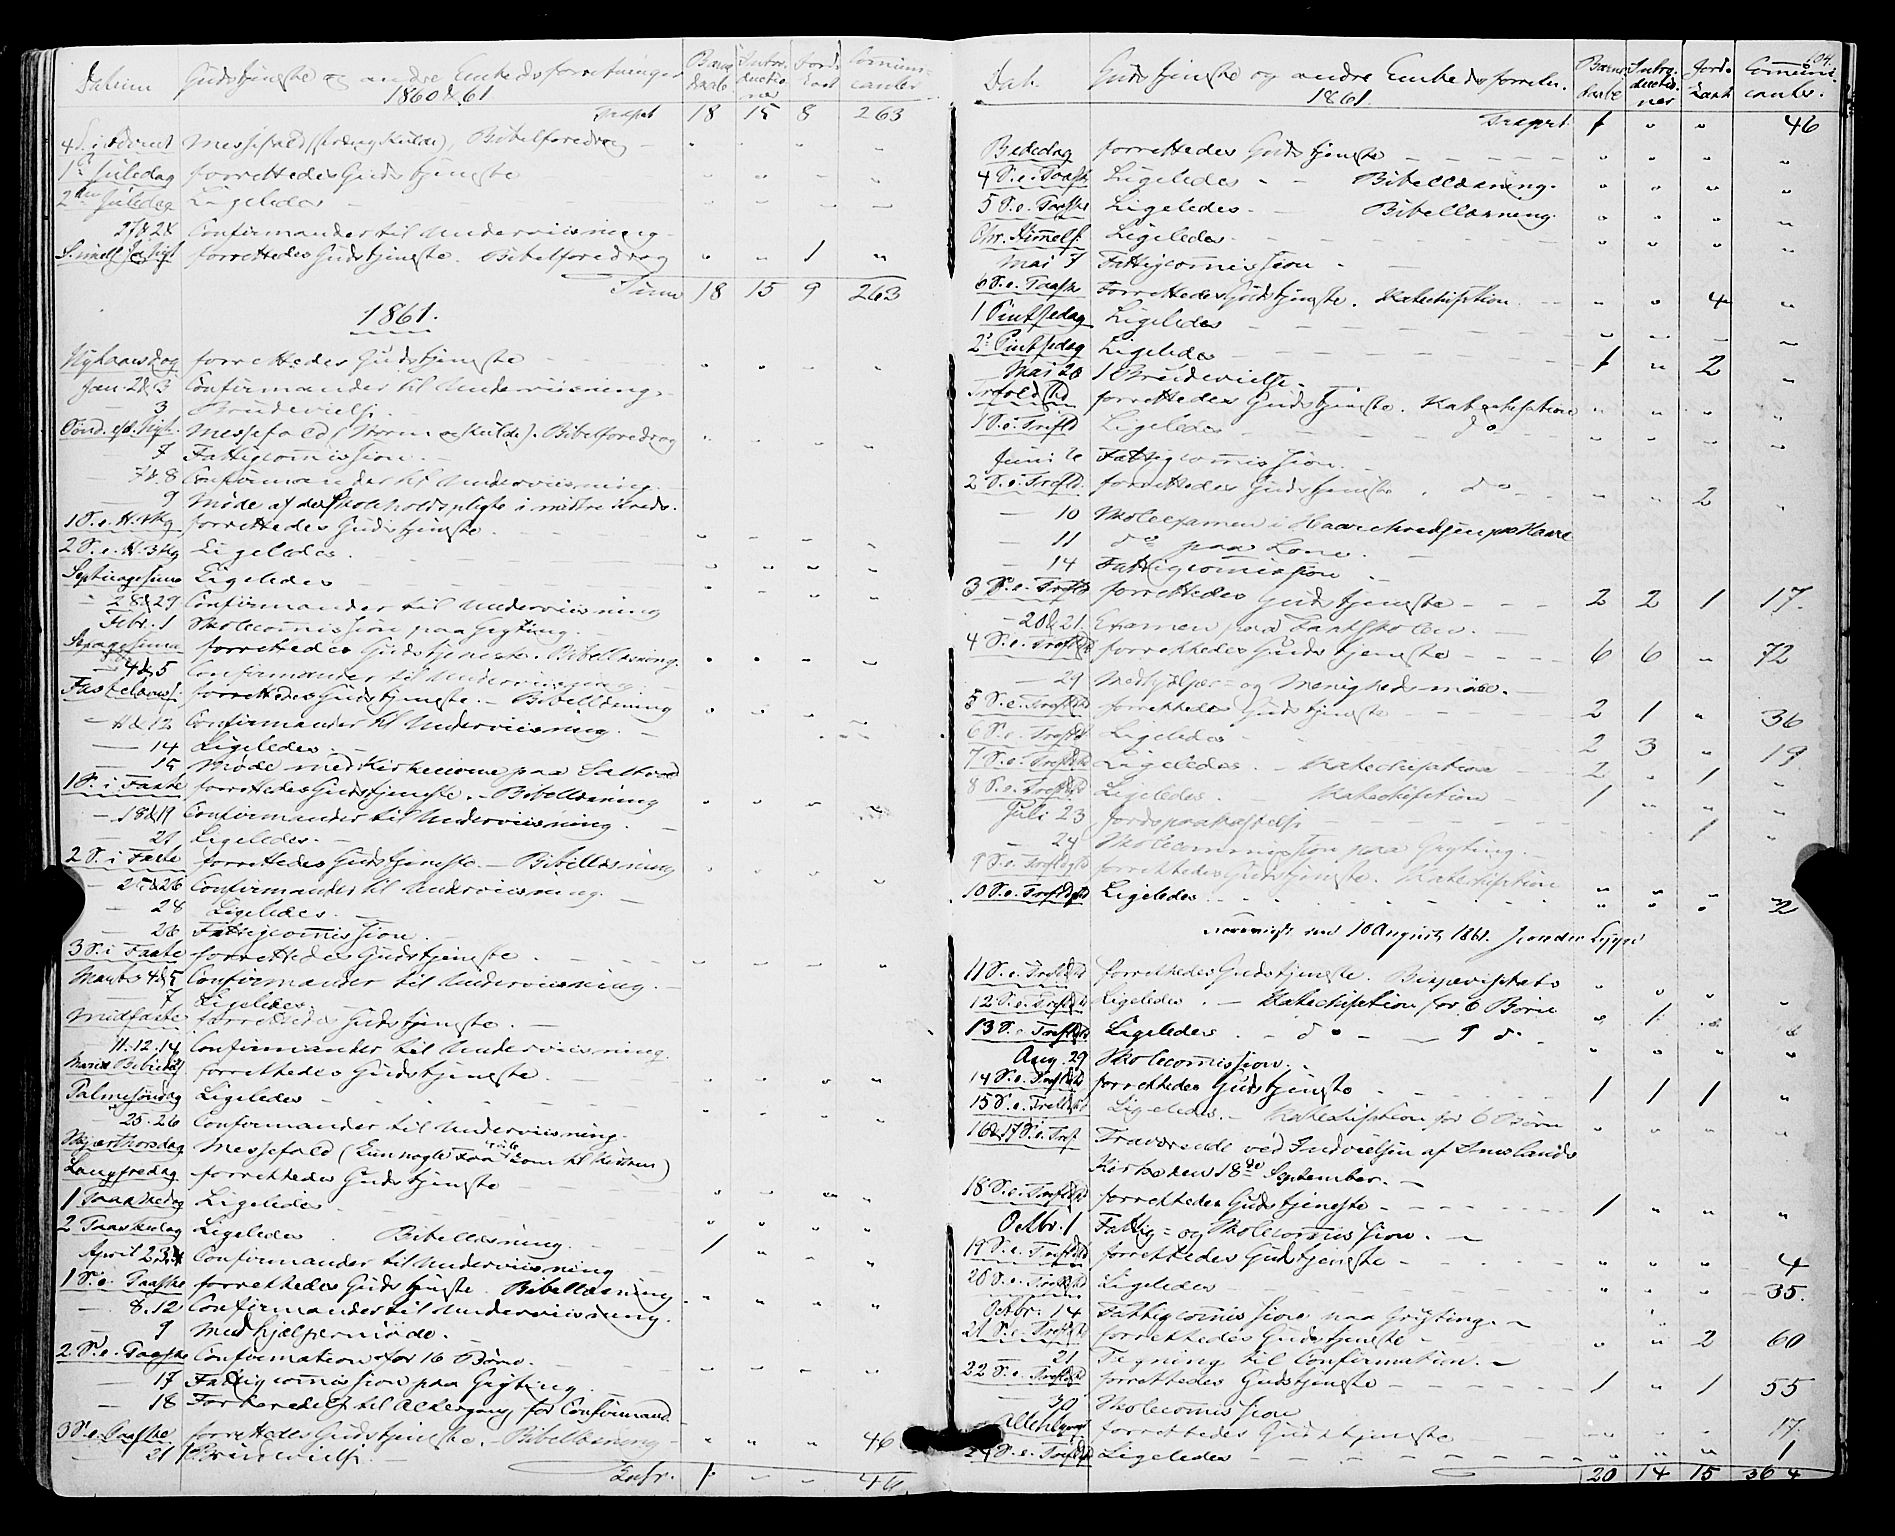 Datum Gudstjeneste og andre Embedsforretninger 1860 & 61 Barne daab. Intro ductio ner Jords kast Comuni canter
Trspt 18 15 8 263
4 S. i Advent Messefald, Bibelforedrag
1st Juledag forrettedes Gudstjeneste
2den Juledag Ligeledes
27 & 28 Confirmander til Underviisning
forrettedes Gudstjeneste. Bibelforedrag " " 1 "
Suma 18 15 9 263
1861.
Nytaarsdag forrettedes Gudstjeneste
Jan. 2 & 3 Confirmander til Underviisning
3 Brudevielse
Sønd. eft. Nyt. Messefald (Storm og Kulde). Bibelforedrag
7 Fattigcomission.
7 & 8 Confirmander til Underviisning
9 Møde af de Skoleholdspligte i midtre Kreds.
1 S. e. H. 3 Kg forrettedes Gudstjeneste
2 S. e. H. 3 Kg Ligeledes
Septuagesima Ligeledes
28 & 29 Confirmander til Underviisning
Febr. 1 Skolecomission paa Gryting.
Sexagesima forrettedes Gudstjeneste. Bibellæsning.
4 & 5 Confirmander til Underviisning
Fastelavns forrettedes Gudstjeneste. - Bibellæsning
11 & 12 Confirmander til Underviisning.
14 Ligeledes.
15 Møde med
1 S. i Faste forrettedes Gudstjeneste. - Bibellæsning
18 & 19 Confirmander til Underviisning.
21 Ligeledes.
2 S. i Faste forrettedes Gudstjeneste. - Bibellæsning
25 & 26 Confirmander til Underviisning.
28 Ligeledes.
28 Fattigcomission.
3 S. i Faste forrettedes Gudstjeneste.
Marts 4 & 5 Confirmander til Underviisning.
7 Ligeledes.
Midfaste forrettedes Gudstjeneste.
11. 12. 14 Confirmander til Underviisning.
Mariæ Bebud. forrettedes Gudstjeneste.
Palmesøndag Ligeledes
25. 26 Confirmander til Underviisning.
Skjærthorsdag Messefald (Kun nogle Faa kom til Kirken)
Langfredag forrettedes Gudstjeneste
1 Paaskedag Ligeledes.
2 Paaskedag Ligeledes. Bibellæsning. 1 " "
April 2. 3. 4 Confirmander til Underviisning
1 S. e. Paaske forrettedes Gudstjeneste. Bibellæsning
8. 12 Confirmander til Underviisning.
9 Medhjælpermøde.
2 S. e. Paaske Confirmation for 16 Børn.
17 Fattigcomission paa Gryting
18 Forberedelse til Altergang for Confirmand.
3 S. e. Paaske forrettedes Gudstjeneste. - Bibellæsning " " " 46
21 1 Brudevielse
1 " " 46
Dat. Gudstjeneste og andre Embedsforretn. 1861. Barne daabe Introductio ner Jords kast Comuni canter.
Trsprt. 1 " " 46
Bededag forrettedes Gudstjeneste
4 S. e. Paaske Ligeledes - Bibellæsning.
5 S. e. Paaske Ligeledes. Bibellæsning.
Chr. Himmelf. Ligeledes.
Mai 7 Fattigcomission
6 S. e. Paaske Forrettedes Gudstjeneste. Katechisation " " 4 "
1 Pintsedag Ligeledes
2. Pintsedag Ligeledes 1 " 2 "
Mai 20 1 Brudevielse.
forrettedes Gudstjeneste. Katechisation
1 S. e. Trefld Ligeledes do
Juni 6 Fattigcomission.
2 S. e. Trefld. forrettedes Gudstjeneste. do " " 2 "
10 Skoleexamen i
11 do paa Lone.
14 Fattigcomission
3 S. e. Trefld forrettedes Gudstjeneste 2 2 1 17.
20 & 21. Examen paa Fastskolen.
4 S. e. Trefld forrettedes Gudstjeneste 6 6 " 72
Medhjælper- og Menighedsmøde.
5 S. e. Trefld forrettedes Gudstjeneste 2 1 " 36
6 S. e. Trefld Ligeledes 2 3 " 19
7 S. e. Trefld Ligeledes. - Katechisation 2 " 1 "
8 S. e. Trefld Ligeledes. - Katechisation 1 " " "
Juli 23 Jordspaakastelse 1 "
24 Skolecommission paa Gryting.
9 S. e. Trefld forrettedes Gudstjeneste. Katechisation
10 S. e. Trefld Ligeledes
10 August 1861.
11 S. e. Trefld forrettedes Gudstjeneste. Bispevisitats
12 S. e. Trefld Ligeledes. - Katechisation for 6 Børn " 1 "
13 S. e. Trefld Ligeledes. - do - 9 do
Aug. 29 Skolecomission.
14 S. e. Trefld forrettedes Gudstjeneste 1 1 1 "
15 S. e. Trefld Ligeledes. - Katechisation for 6 Børn
16 & 17 S. e. Tref Fraværende ved Indvielsen af
Kirke den 18de September.
18 S. e. Trefld forrettedes Gudstjeneste 1 " " "
Octbr. 1 Fattig- og Skolecomission.
19 S. e. Trefld forrettedes Gudstjeneste " " " 4
20 S. e. Trefld Ligeledes " " " 35.
Octbr. 14 Fattigcomission paa Gryting.
21 S. e. Trefld forrettedes Gudstjeneste " " 2 60
21 Tegning til Confirmation.
22 S. e. Trefld forrettedes Gudstjeneste 1 " 1 55
30 Skolecomission
Allehlgnd forrettedes Gudstjeneste 17.
24 S. e. Trefld Ligeledes 1
20 14 15 364